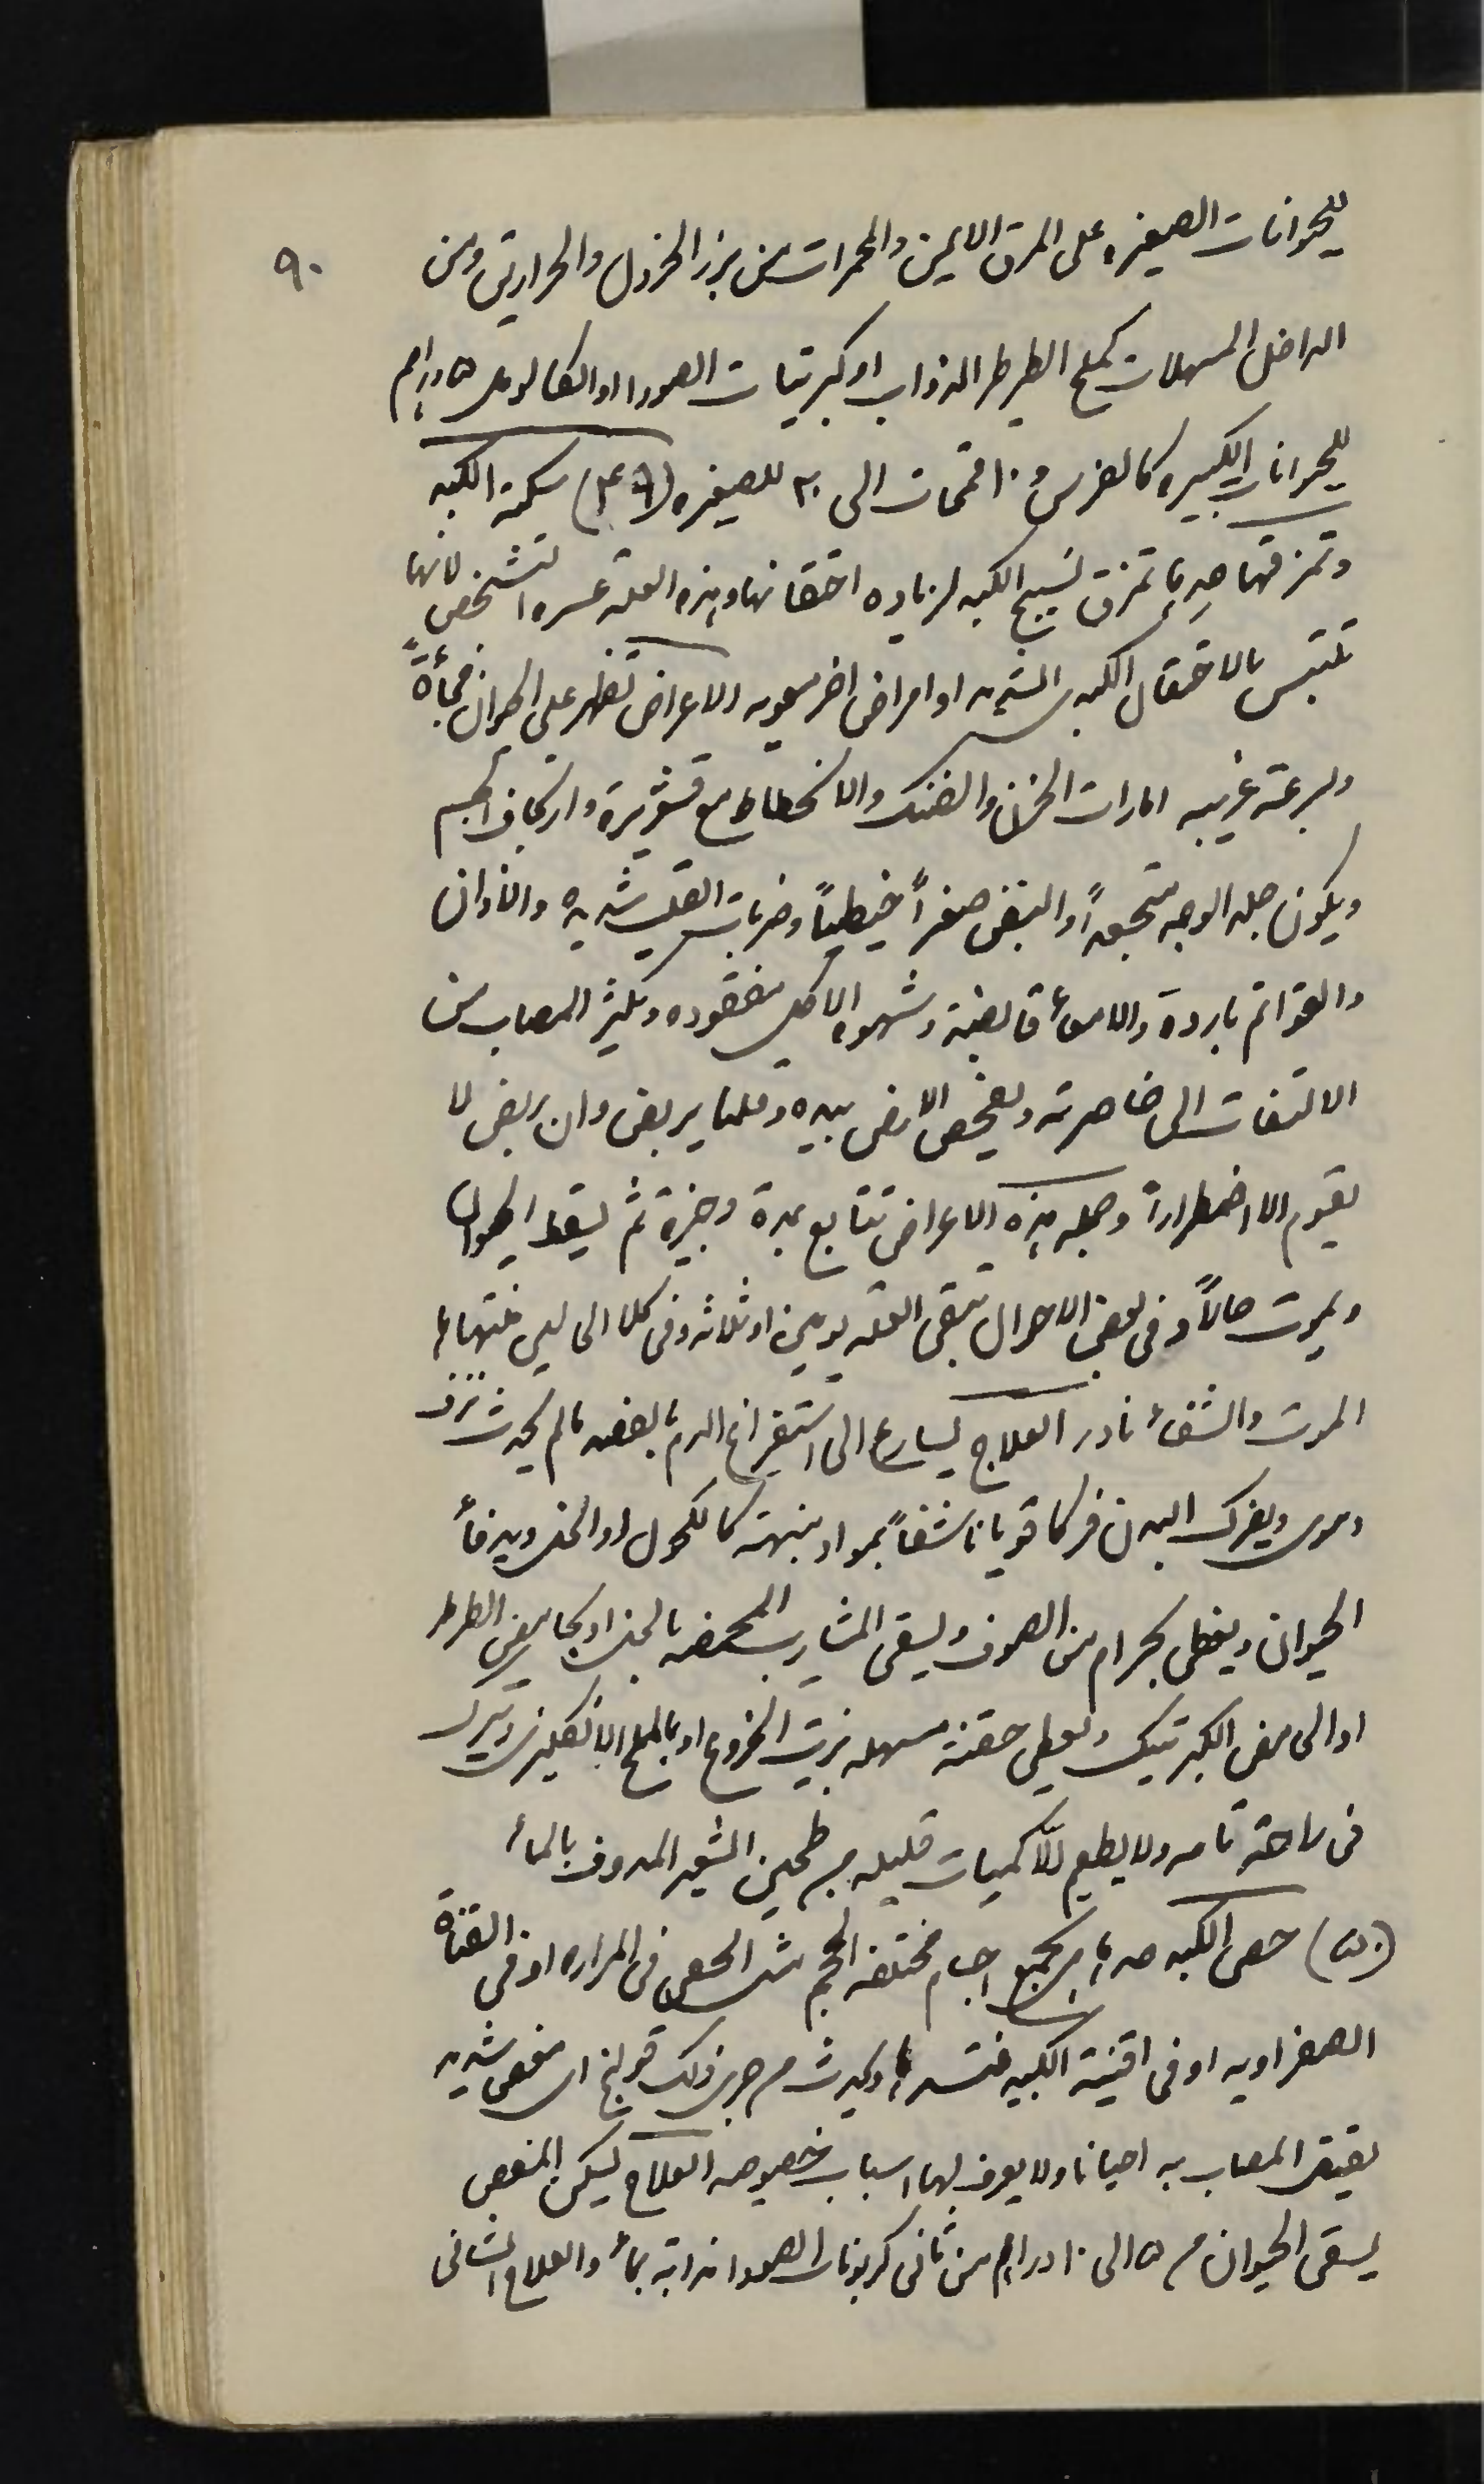 ٩٠
للحيوانات الصغيره على المرق الايمن والمحمرات من بزر الخردل والحراريق ومن
الداخل المسهلات كملح الطرطر المذواب او كبريتات الصودا او الكالومل ٥ دراهم
للحيوانات الكبيره كالفرس و١٠ قمحات الى ٢٠ للصغيره (٤٩) سكتة الكبد
وتمزقها هي تمزق نسيج الكبد لزياده احتقانها وهذه العله عسرة التشخص لانها
تلتبس بالاحتقان الكبدي الشديد او امراض اخر معويه الاعراض تظهر على الحيوان فجأةً
وبسرعة غريبه امارات الحزن والضنك والانحطاط مع قشعريرة وارتجاف الجسم
ويكون جلد الوجه متجعداً والنبض صغيراً خيطياً وضربات القلب شديده والاذان
والقوائم باردة والامعأ قابضة وشهوة الاكل مفقوده ويكثر المصاب من
الالتفات الى خاصرته ويفحص الارض بيده وقلما يربض وان ربض لا
يقوم الا اضطراراً وجملة هذه الاعراض تتابع بمدة وجيزة ثم يسقط الحيوان
ويموت حالاً وفي بعض الاحوال تبقى العله يومين او ثلاثه وفي كلا الحالين منتهاها
الموت والشفأ نادر العلاج يسارع الى استفراغ الدم بالفصد ما لم يحدث نزف
دموي ويفرك البدن فركا قويا ناشفاً بمواد منبهة كالكحول او الخل ويدفأ
الحيوان ويغطى بحرام من الصوف ويسقى المشارب المحمضه بالخل او بحامض الطرطر
او الحامض الكبرتيك ويعطى حقنة مسهله بزيت الخروع او بالملح الانكليزي ويترك
في راحة تامه ولا يطعم الا كميات قليله من طحين الشعير المدوف بالمأ
(٥٠) حصى الكبد هداء تجمع اجسام مختلفة الحجم مثل الحصى في المراره او في القناة
الصفراويه او في اقنية الكبد فتسدها ويحدث من جرى ذلك قولنج اي مغص شديد
يقيق المصاب به احيانا ولا يعرف لها اسباب خصوصه العلاج ليسكن المغص
يسقى الحيوان من ٥ الى ١٠ دراهم من ثاني كربونات الصودا مذابة بمأ والعلاج الشافي